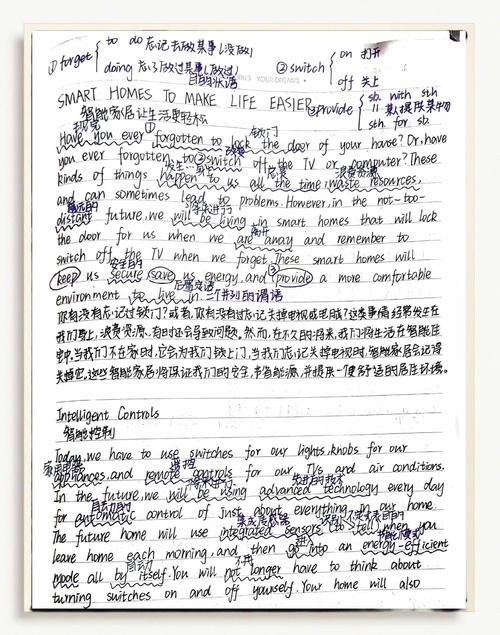 ① forget { to do 忘记去做某事(没做)
doing 忘了做过某事(做过)
② switch { on 打开
off 关上
目的状语
YOUR DREAMS
SMART HOMES TO MAKE LIFE EASIER
③ provide { sb. with sth
〃 某人提供某物
sth. for sb.
智能家居让生活更轻松
①
锁门
Have you ever forgotten to lock the door of your house? Or, have
you ever forgotten to ② switch off the TV or computer? These
浪费资源
kinds of things happen to us all the time, waste resources,
and can sometimes lead to problems. However, in the not-too-
distant future, we will be living in smart homes that will lock
离开
the door for us when we are away and remember to
switch off the TV when we forget. These smart homes will
安全的
③
keep us secure, save us energy, and provide a more comfortable
后置定语
environment to live in. 三个并列的谓语
你有没有忘记过锁门?或者,你有没有忘记关掉电视或电脑?这类事情经常发生在
我们身上,浪费资源,有时还会导致问题。然而,在不久的将来,我们将生活在智能住
宅中,当我们不在家时,它会为我们锁上门,当我们忘记关掉电视时,智能家居会记得
关掉它。这些智能家居将保证我们的安全,节省能源,并提供一个更舒适的居住环境。
Intelligent Controls
智能控制
Today, we have to use switches for our lights, knobs for our
家用电器
遥控
appliances, and remote controls for our TVs and air conditions.
先进的技术
In the future, we will be using advanced technology every day
自动的
for automatic control of just about everything in our home.
The future home will use integrated sensors to tell when you
进入
节能模式
leave home each morning, and then go into an energy-efficient
自动
不再
mode all by itself. You will not longer have to think about
turning switches on and off yourself. Your home will also